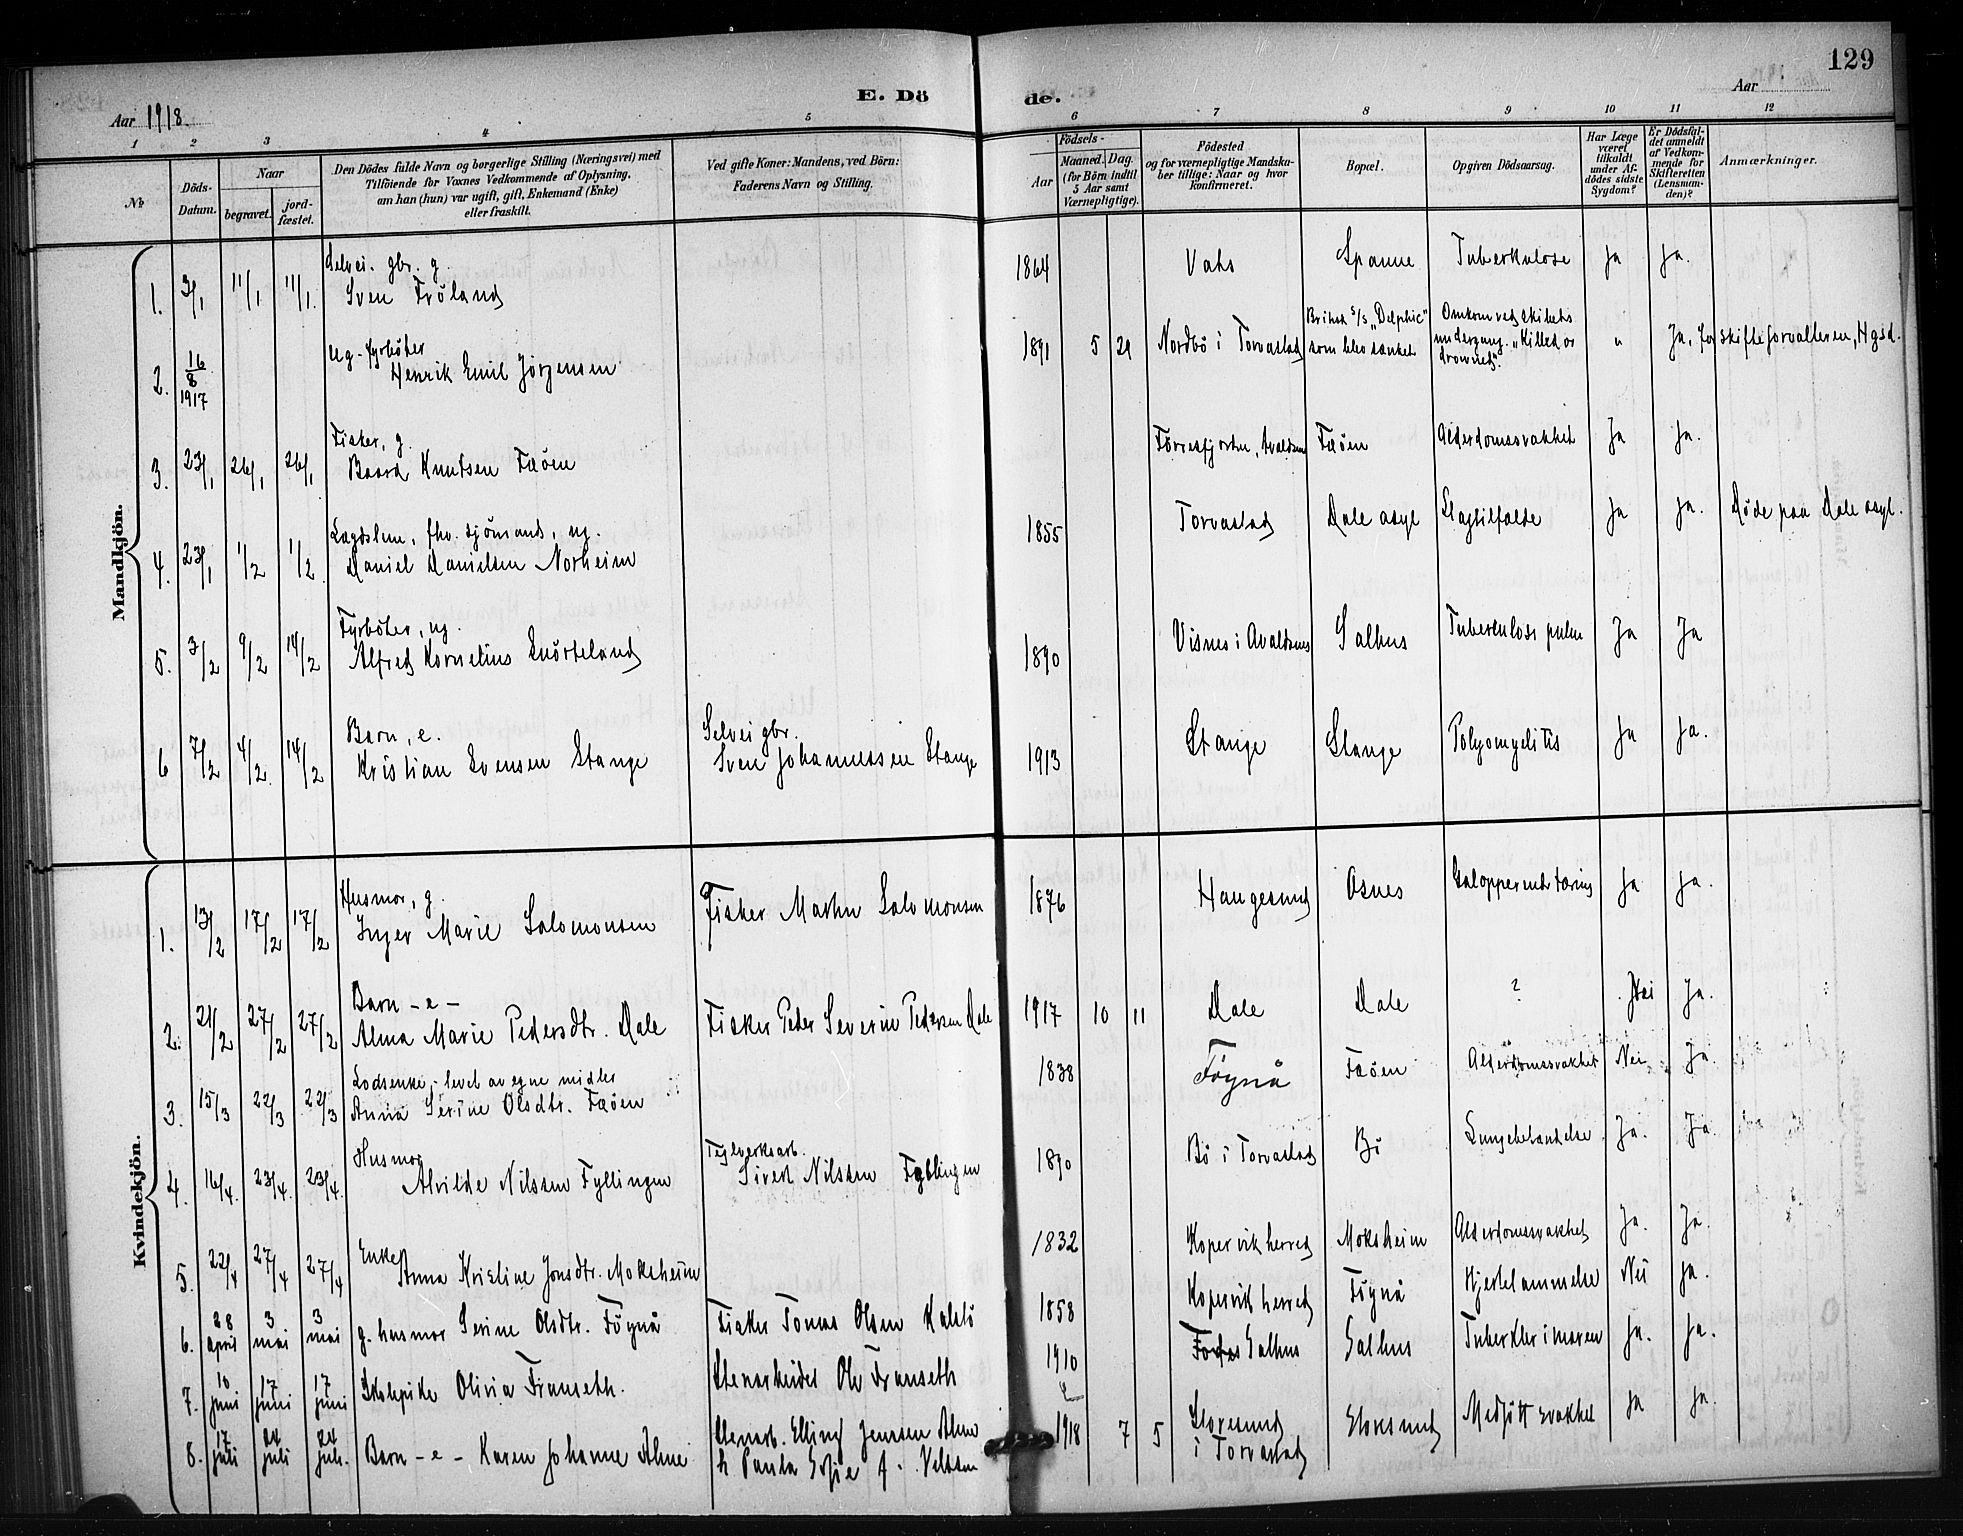 129
E. Dö
de.
Aar 1918.
Aar
1 2 3 4 5 6 7 8 9 10 11 12
No
Döds-Datum.
Naar
begravet.
jord-fæstet.
Den Dödes fulde Navn og borgerlige Stilling (Næringsvei) med
Tilföiende for Voxnes Vedkommende af Oplysning,
om han (hun) var ugift, gift, Enkemand (Enke)
eller fraskilt.
Ved gifte Koner: Mandens, ved Börn:
Faderens Navn og Stilling.
Födsels-
Aar
Maaned. Dag.
(for Börn indtil
5 Aar samt
Værnepligtige).
Födested
og for værnepligtige Mandska-
ber tillige: Naar og hvor
konfirmeret.
Bopæl.
Opgiven Dödsaarsag.
Har Læge
været
tilkaldt
under Af-
dödes sidste
Sygdom?
Er Dödsfal-
det anmeldt
af Vedkom-
mende for
Skifteretten
(Lensman-
den)?
Anmærkninger.
Mandkjön.
Selvei. gbr. g.
1. 3/1 11/1 11/1. Sven Fröland 1864 Vats Spanne Tuberkulose Ja Ja.
Ug. fyrböter
2. 16/8 1917 Henrik Emil Jörgensen 1891 5 29 Nordbö i Torvastad
Britisk s/s "Delphic"
som blev sænket
Omkom ved skibets
undergang. "Killed or
drowned".
" Ja, for skifteforvalteren, Hgsd.
Fisker, g.
3. 23/1 26/1 26/1 Baard Knutsen Fæöen Förresfjorden, Avaldsnes Fæöen Alderdomssvakhet Ja Ja.
Lægdslem, fhv. sjömand, ug.
4. 23/1 1/2 1/2 Daniel Danielsen Norheim 1855 Torvastad Dale asyl Slagtilfælde Ja Ja. Döde paa Dale asyl.
Fyrböter, ug.
5. 3/2 9/2 14/2 Alfred Kornelius Snörteland 1890 Visnes i Avaldsnes Salhus Tuberkulose pulm Ja Ja
Barn, e. Selvei gbr.
6 7/2 4/2 14/2 Kristian Svensen Stange Sven Johannessen Stange 1913 Stange Stange Polyomyelitis Ja Ja.
Kvindekjön.
Husmor, g.
1. 13/2 17/2 17/2 Inger Marie Salomonsen Fisker Martin Salomonsen 1876 Haugesund Osnes Galopperende tæring Ja Ja.
Barn - e -
2. 21/2 27/2 27/2 Alma Marie Pedersdtr. Dale Fisker Peder Severin Pedersen Dale 1917 10 11 Dale Dale ? Nei Ja.
Lodsenke, levet av egne midler
3. 15/3 22/3 22/3 Anna Serine Olsdtr. Fæöen 1838 Föynå Fæöen Alderdomssvakhet Nei Ja.
Husmor Teglverksarb.
4. 16/4. 23/4. 23/4. Alvilde Nilssen Fyllingen Sivert Nilssen Fyllingen 1890 Bö i Torvastad Bö Lungebetændelse Ja. Ja
5. 22/4 27/4 27/4 Enke Anna Kristine Jonsdtr. Moksheim 1832 Kopervik herred Moksheim Alderdomssvakhet Ja. Ja.
6. 28 april 3 mai 3 mai g. husmor Serine Olsdtr. Föynå Fisker Tomas Olsen Kalstö 1858 Kopervik herred Föynå Hjertelammelse Nei Ja.
7. 10 juni 17 juni 17 juni Skolepike Olivia Franseth. Stenarbeider Ole Franseth 1910 Salhus Salhus Tuberkler i maven Ja. Ja.
8. 17 juli 24 juli 24 juli. Barn - e - Karen Johanne Alme Stenarb. Elling Jensen Alme
h Paula Sofie f. 1918 7 5 Storesund
i Torvastad Storesund Medfött svakhet Ja Ja.